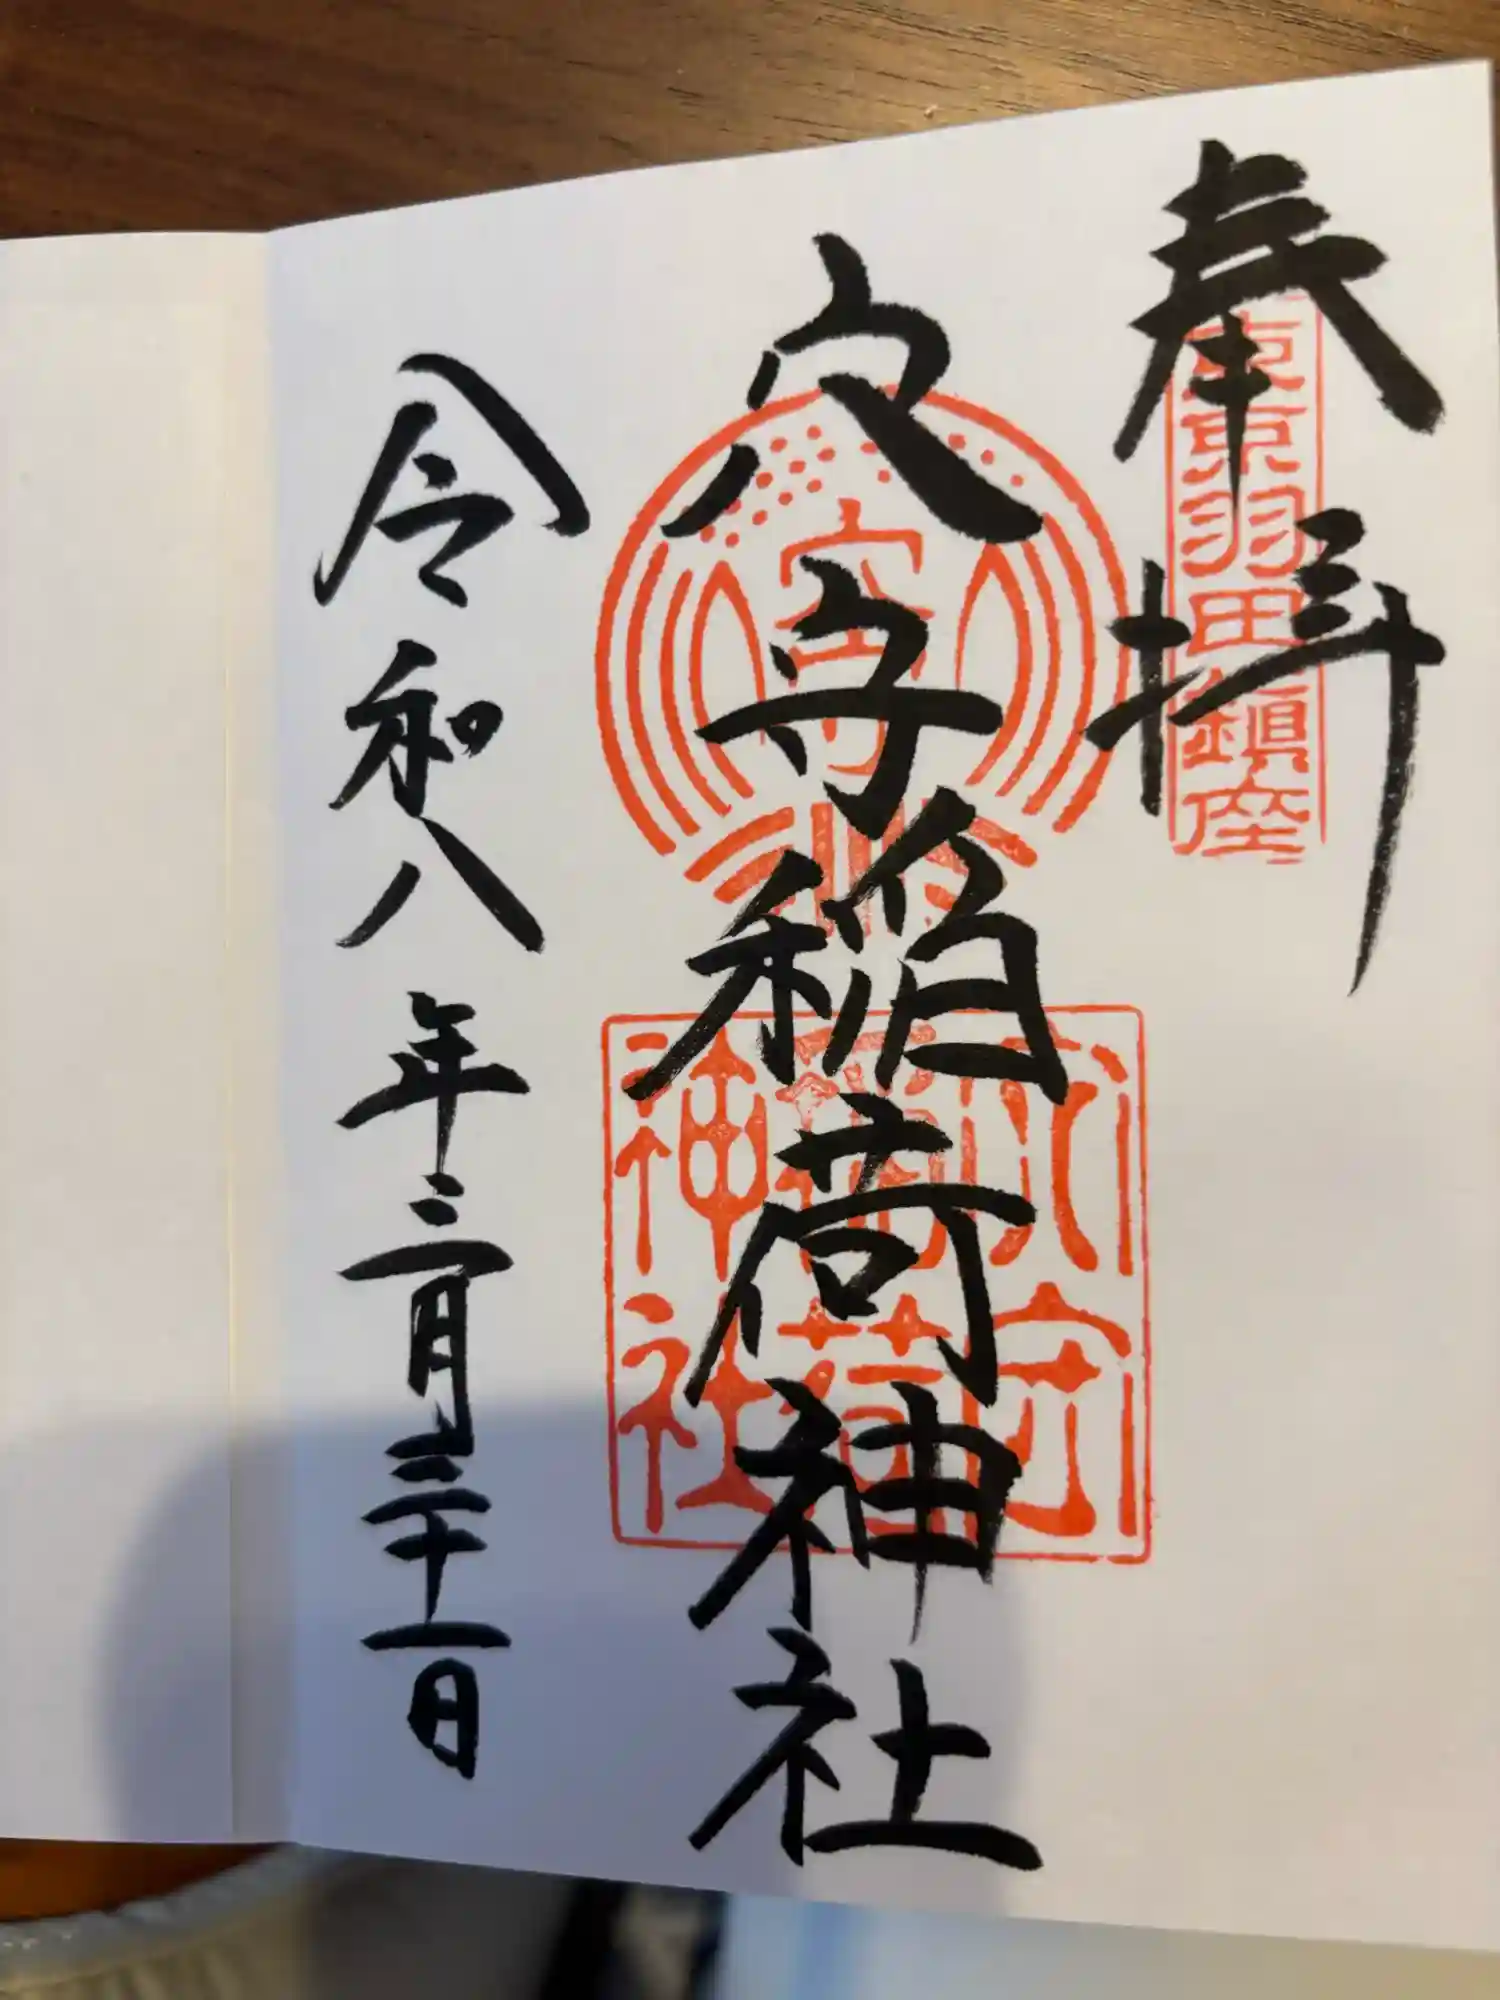 奉拝
東京羽田鎮座
穴守稲荷神社
穴守
稲荷
神社
令和八年三月三十一日